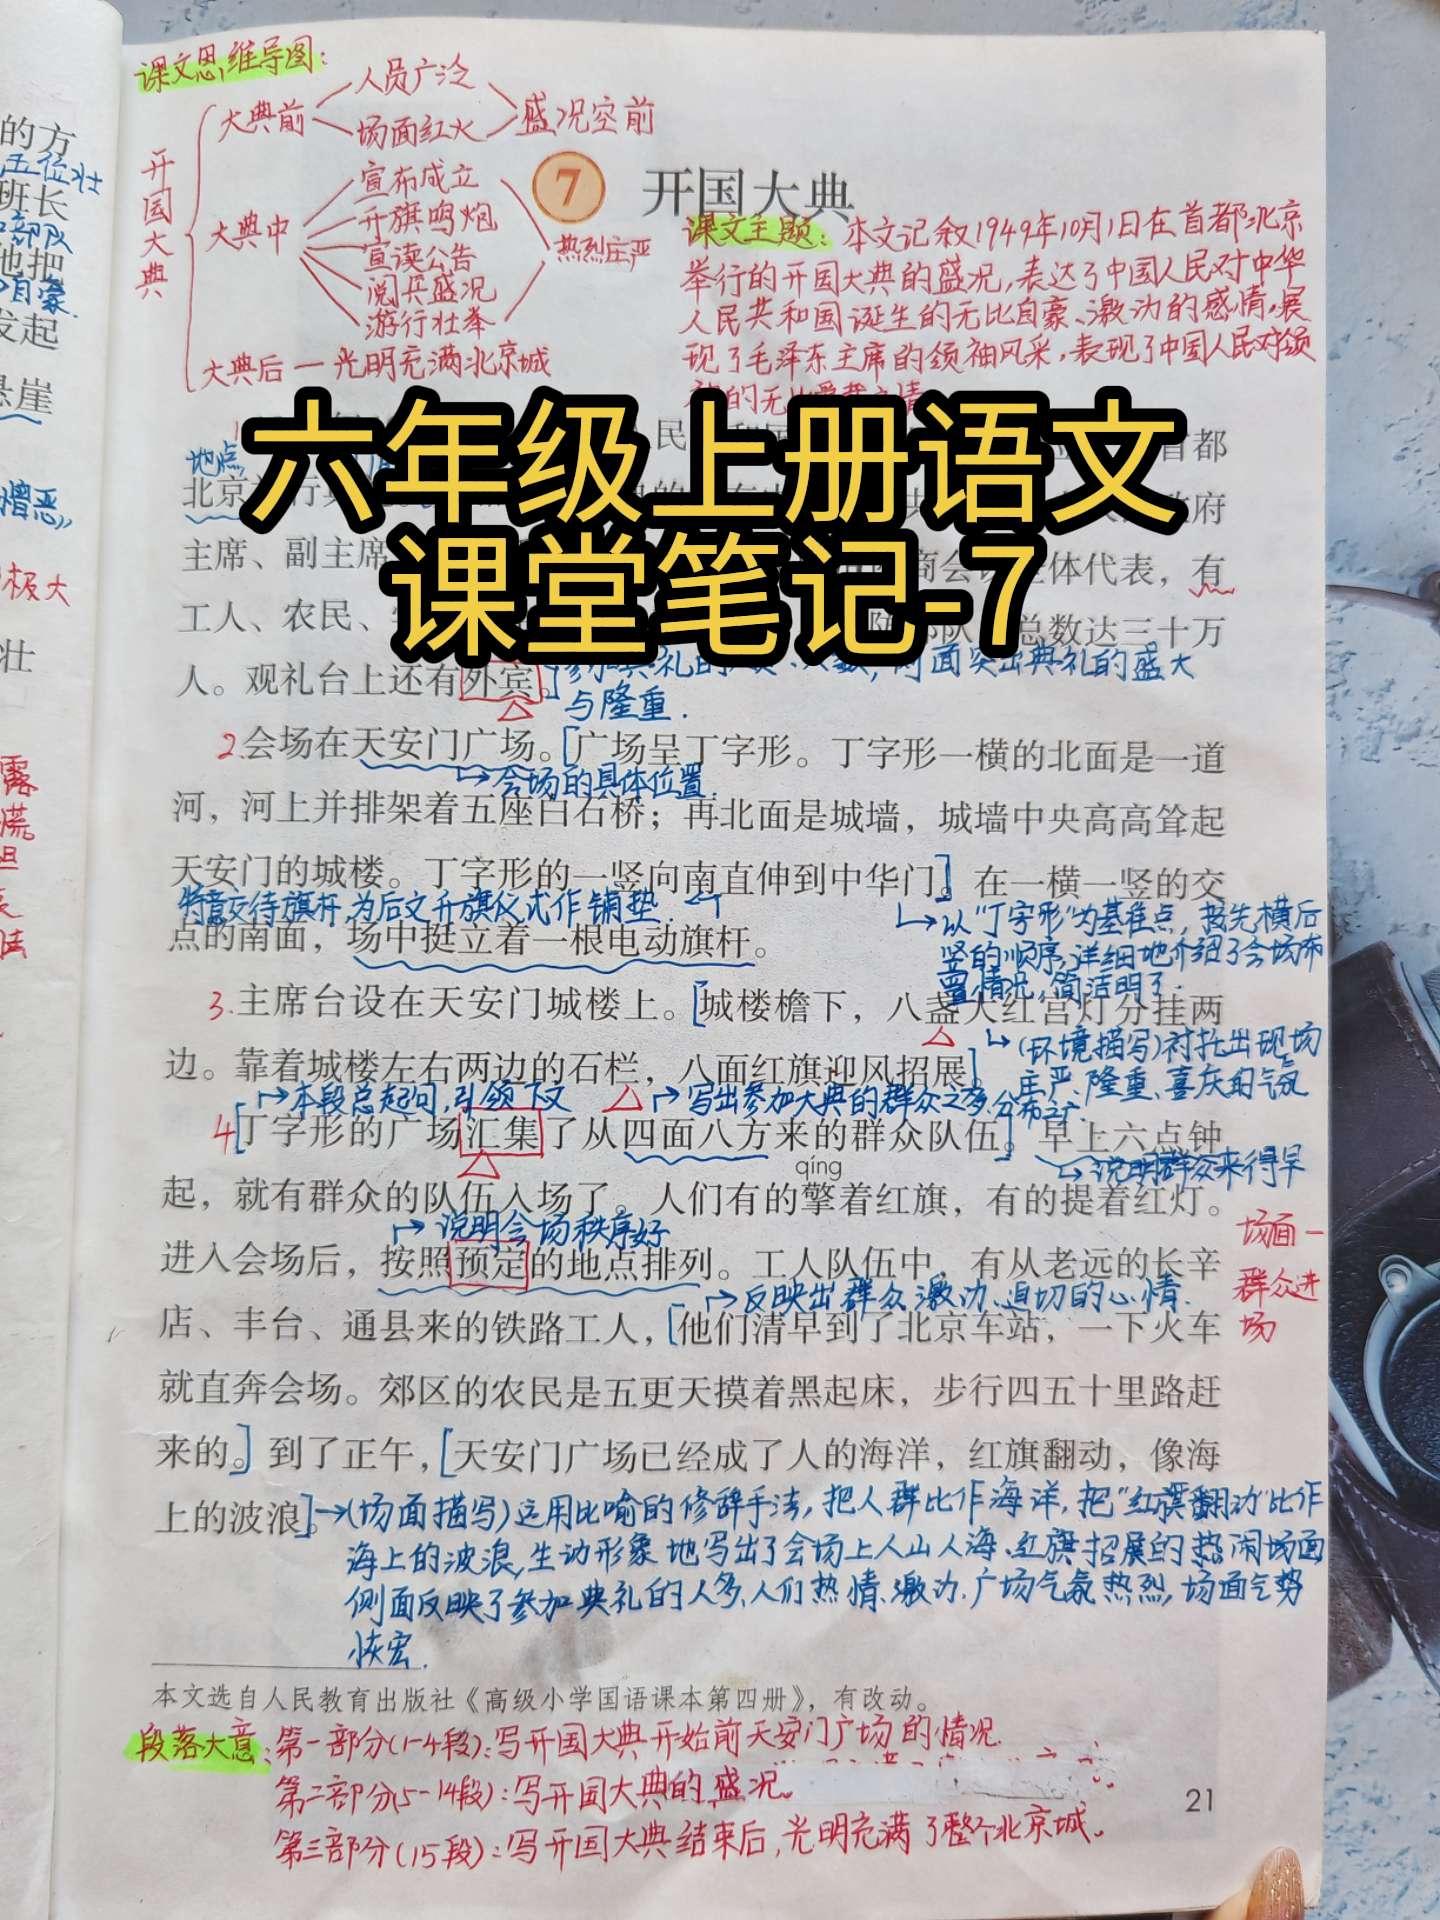 课文思维导图:
人员广泛
大典前
场面红火
盛况空前
开国大典
宣布成立
升旗鸣炮
大典中
宣读公告
热烈庄严
阅兵盛况
游行壮举
大典后一光明充满北京城
7 开国大典
课文主题:本文记叙1949年10月1日在首都北京
举行的开国大典的盛况,表达了中国人民对中华
人民共和国诞生的无比自豪、激动的感情,展
现了毛泽东主席的领袖风采,表现了中国人民对领
六年级上册语文
课堂笔记-7
地点
首都
北京
主席、副主席
体代表,有
工人、农民、
总数达三十万
人。观礼台上还有外宾。
面突出典礼的盛大
与隆重.
2.会场在天安门广场。[广场呈丁字形。丁字形一横的北面是一道
会场的具体位置.
河,河上并排架着五座白石桥;再北面是城墙,城墙中央高高耸起
天安门的城楼。丁字形的一竖向南直伸到中华门。]在一横一竖的交
特意交待旗杆,为后文升旗仪式作铺垫.
以"丁字形"为基准点,按先横后
点的南面,场中挺立着一根电动旗杆。
竖的顺序,详细地介绍了会场布
置情况,简洁明了.
3.主席台设在天安门城楼上。[城楼檐下,八盏大红宫灯分挂两
边。靠着城楼左右两边的石栏,八面红旗迎风招展。]
(环境描写)衬托出现场
庄严、隆重、喜庆的气氛
本段总起句,引领下文
写出参加大典的群众之多,分布之广.
4.[丁字形的广场汇集了从四面八方来的群众队伍。]早上六点钟
说明群众来得早
qíng
起,就有群众的队伍入场了。人们有的擎着红旗,有的提着红灯。
说明会场秩序好
进入会场后,按照预定的地点排列。工人队伍中,有从老远的长辛
反映出群众激动、迫切的心情.
场面一
群众进
场
店、丰台、通县来的铁路工人,[他们清早到了北京车站,一下火车
就直奔会场。郊区的农民是五更天摸着黑起床,步行四五十里路赶
来的。]到了正午,[天安门广场已经成了人的海洋,红旗翻动,像海
上的波浪。]
(场面描写)运用比喻的修辞手法,把人群比作海洋,把"红旗翻动"比作
海上的波浪,生动形象地写出了会场上人山人海、红旗招展的热闹场面
侧面反映了参加典礼的人多、人们热情、激动、广场气氛热烈,场面气势
恢宏.
本文选自人民教育出版社《高级小学国语课本第四册》,有改动。
段落大意:第一部分(1-4段):写开国大典开始前天安门广场的情况.
第二部分(5-14段):写开国大典的盛况。
第三部分(15段):写开国大典结束后,光明充满了整个北京城。
21
的方
五位壮
班长
部队
他把
自豪.
发起
悬崖
憎恶"
极大
壮